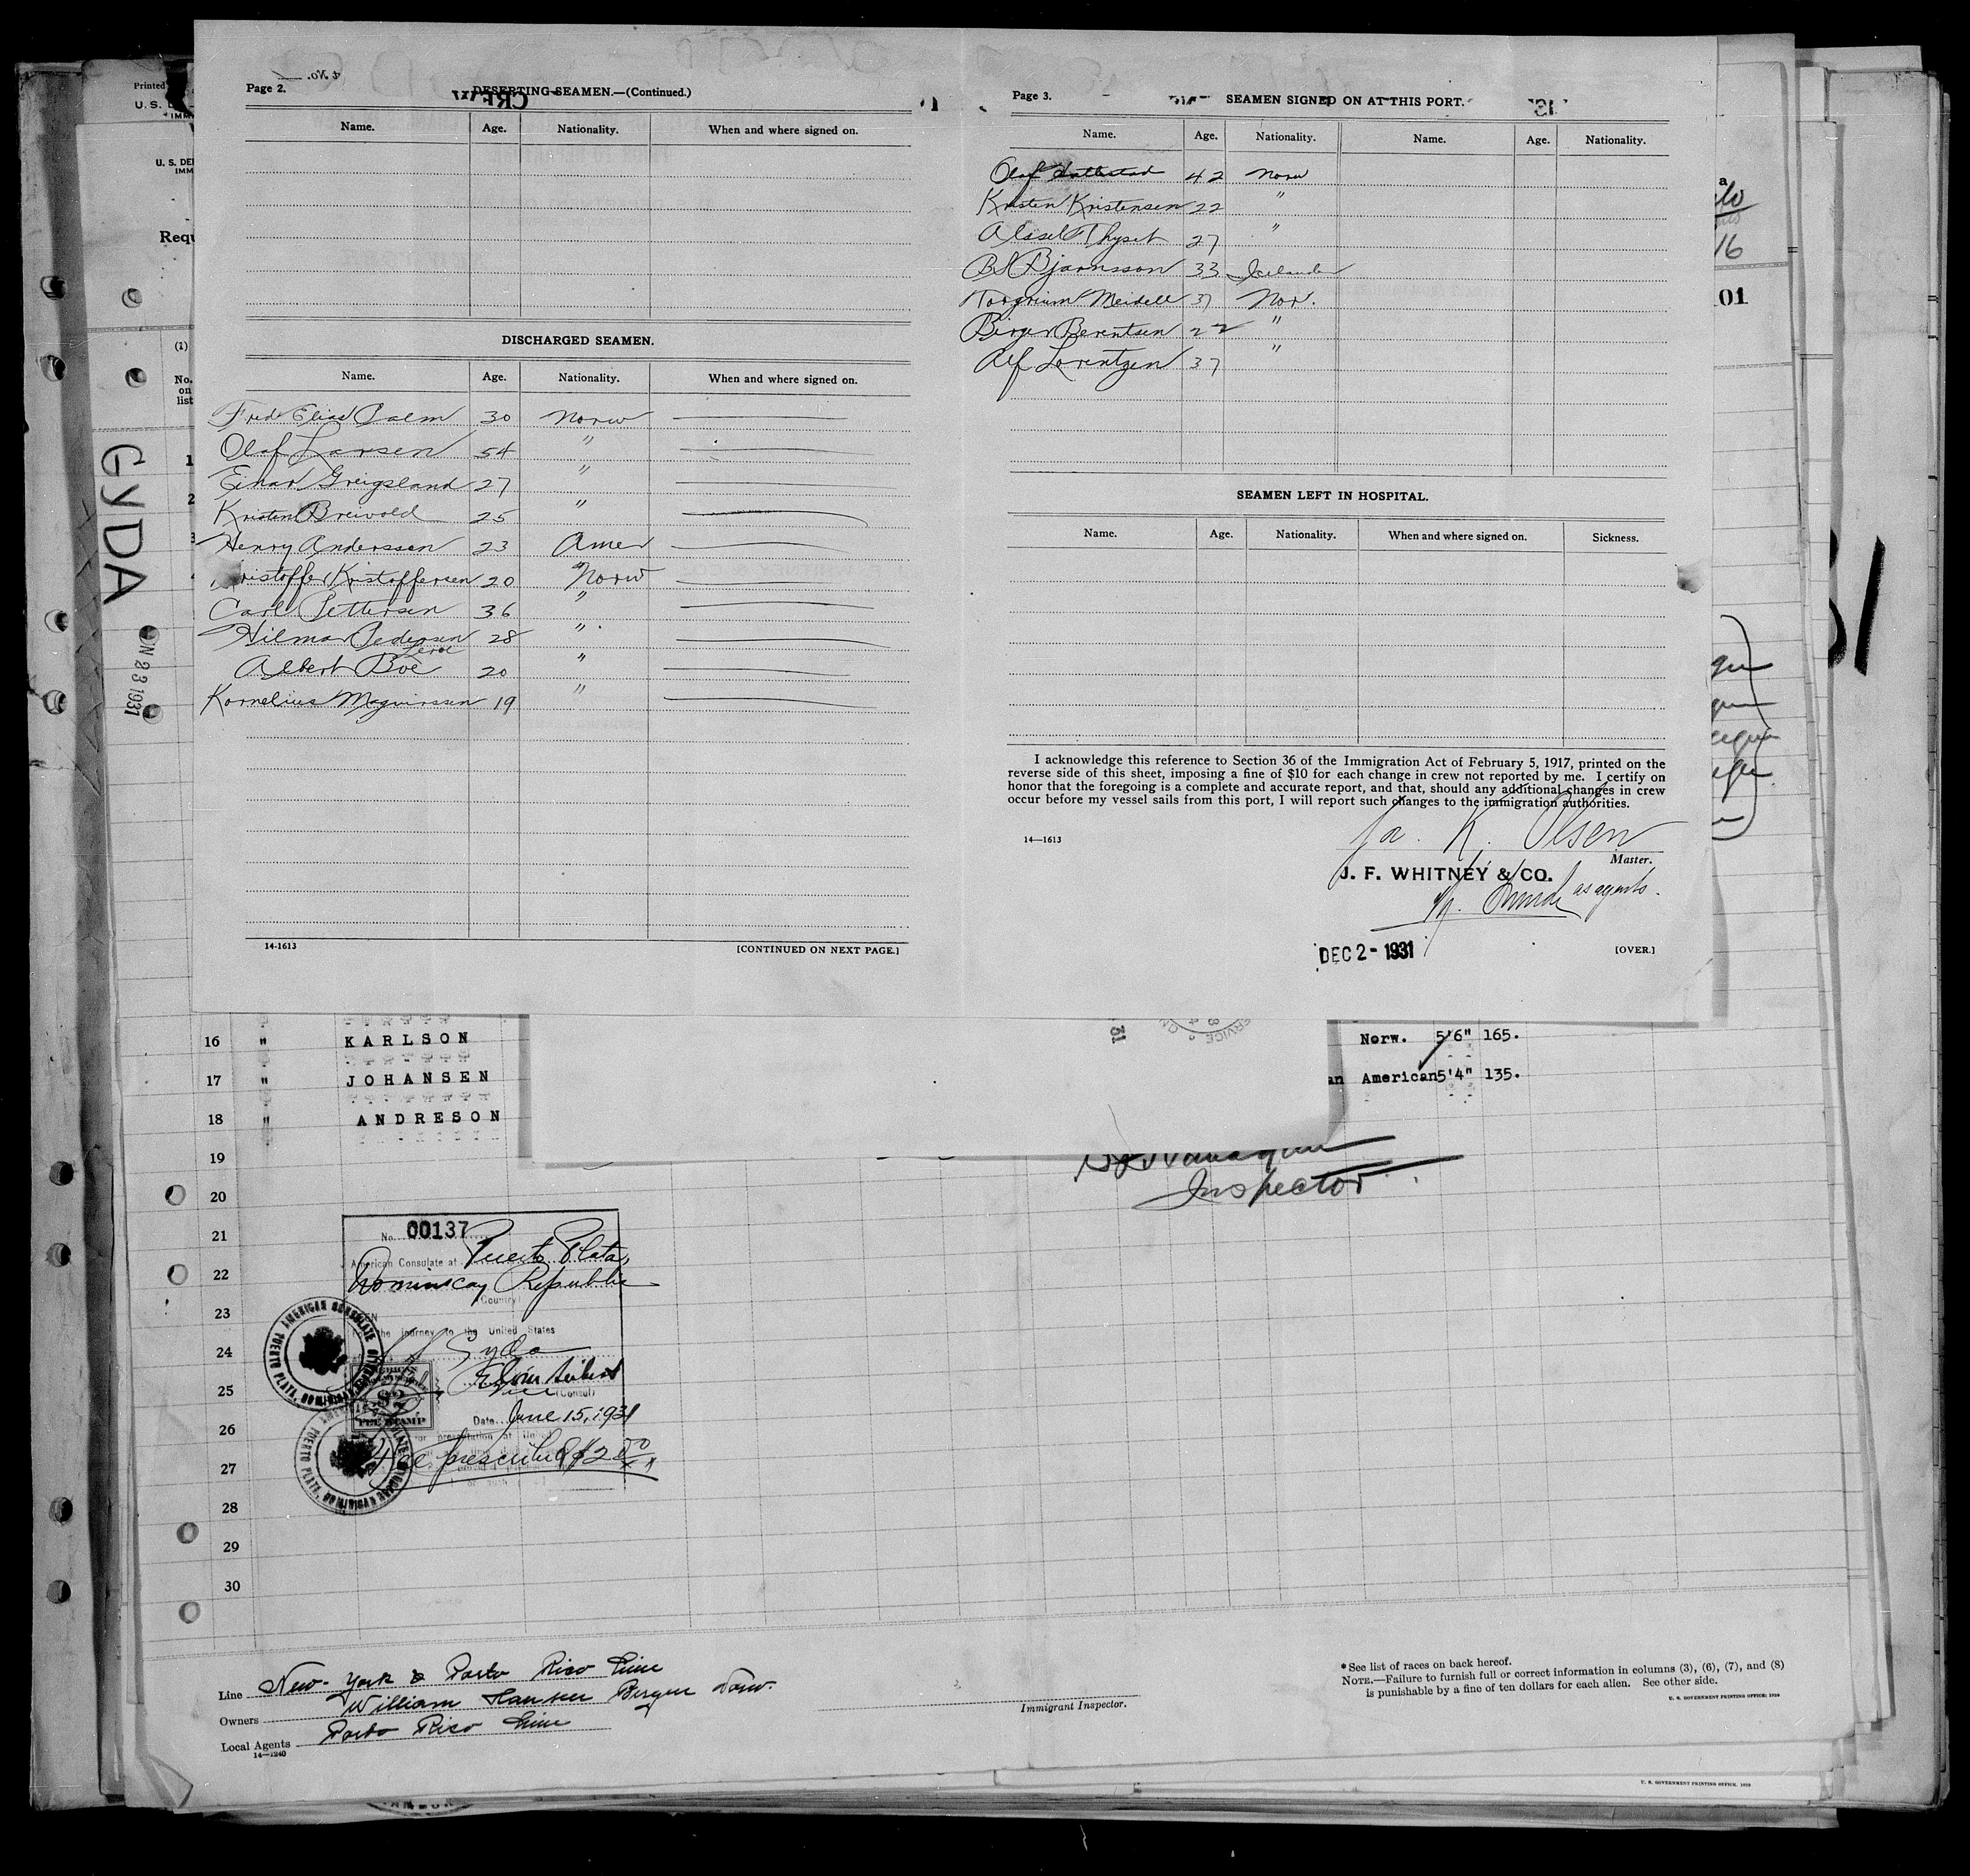 Page 2.
DESERTING SEAMEN.—(Continued.)
Name. Age. Nationality. When and where signed on.
DISCHARGED SEAMEN.
Name. Age. Nationality. When and where signed on.
Fred Elias Palm 30 Norw
Olaf Larsen 54 "
Einar Greigsland 27 "
Kristen Breivold 25 "
Henry Anderssen 23 Amer
Kristoffersen 20 Norw
Carl Pettersen 36 "
Hilmar Pedersen 28 "
Albert Boe 20 "
Kornelius 19 "
14-1613 [CONTINUED ON NEXT PAGE.]
Page 3.
SEAMEN SIGNED ON AT THIS PORT.
Name. Age. Nationality. Name. Age. Nationality.
Olaf 42 Norw
Kristen Kristensen 22 "
27 "
Bjarnsson 33 Icelander
Meidell 37 Nor.
Birger Berentsen 22 "
Alf Lorentzen 37 "
SEAMEN LEFT IN HOSPITAL.
Name. Age. Nationality. When and where signed on. Sickness.
I acknowledge this reference to Section 36 of the Immigration Act of February 5, 1917, printed on the
reverse side of this sheet, imposing a fine of $10 for each change in crew not reported by me. I certify on
honor that the foregoing is a complete and accurate report, and that, should any additional changes in crew
occur before my vessel sails from this port, I will report such changes to the immigration authorities.
K. Olsen
14—1613
Master.
J. F. WHITNEY & CO.
as agents.
DEC 2 - 1931
[OVER.]
Printed
U. S. DE
IMM
Requ
(1)
No.
on
list
GYDA
1931
01
16 " KARLSON Norw. 5'6" 165.
17 " JOHANSEN an American 5'4" 135.
18 " ANDRESON
19
20
Inspector
21
22
23
24
25
26
27
28
29
30
No. 00137
American Consulate at Puerto Plata,
Dominican Republic
(Country)
For the journey to the United States
Gyda
Vice (Consul)
Date June 15, 1931
Fee prescribed $2.00
AMERICAN CONSULATE
PUERTO PLATA, DOMINICAN REPUBLIC
$2
FEE STAMP
Line New-York & Porto Rico Line
Owners William Hansen Bergen Norw.
Local Agents Porto Rico Line
14—1240
Immigrant Inspector.
* See list of races on back hereof.
NOTE.—Failure to furnish full or correct information in columns (3), (6), (7), and (8)
is punishable by a fine of ten dollars for each alien. See other side.
U. S. GOVERNMENT PRINTING OFFICE: 1930